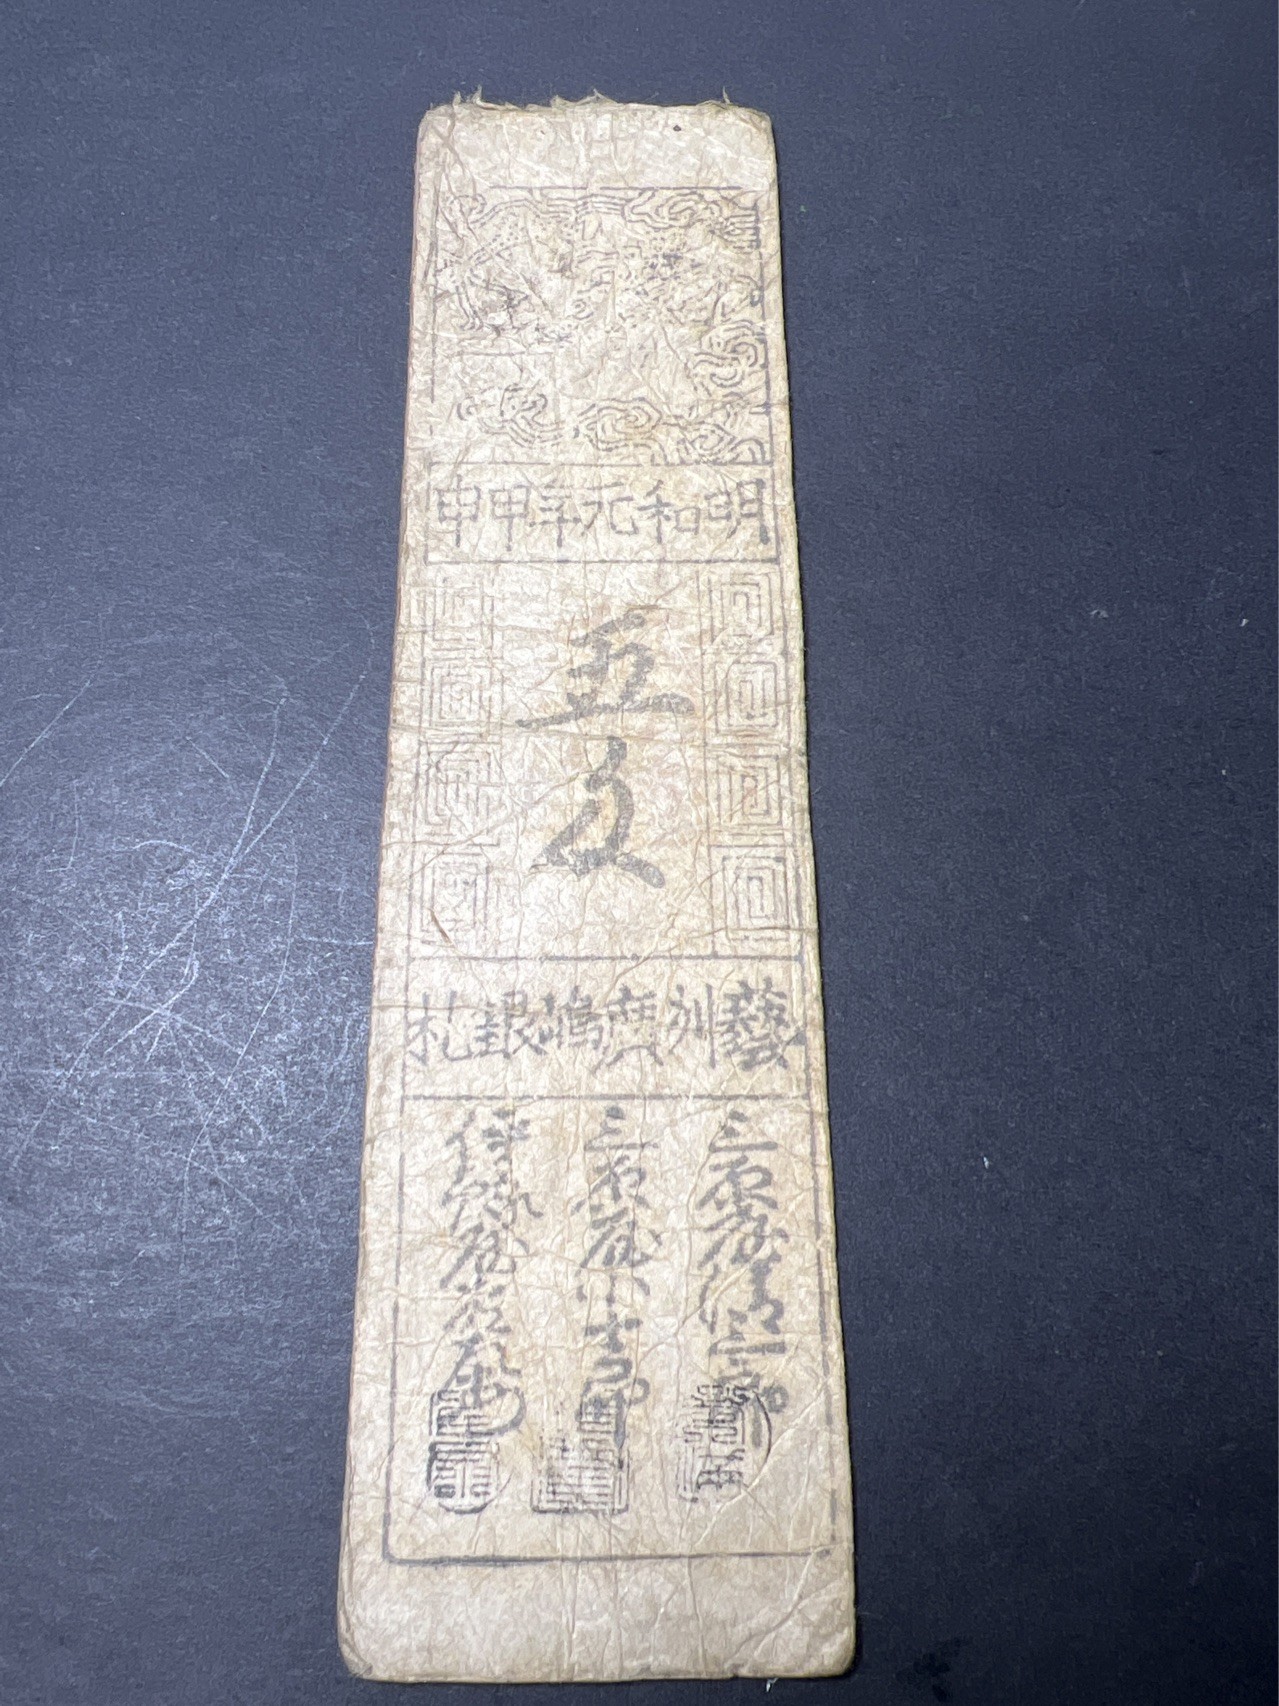 明和元年甲申
五匁
藝州廣嶋銀札
三原屋清三郎
三原屋小十郎
伊豫屋吉左衛門